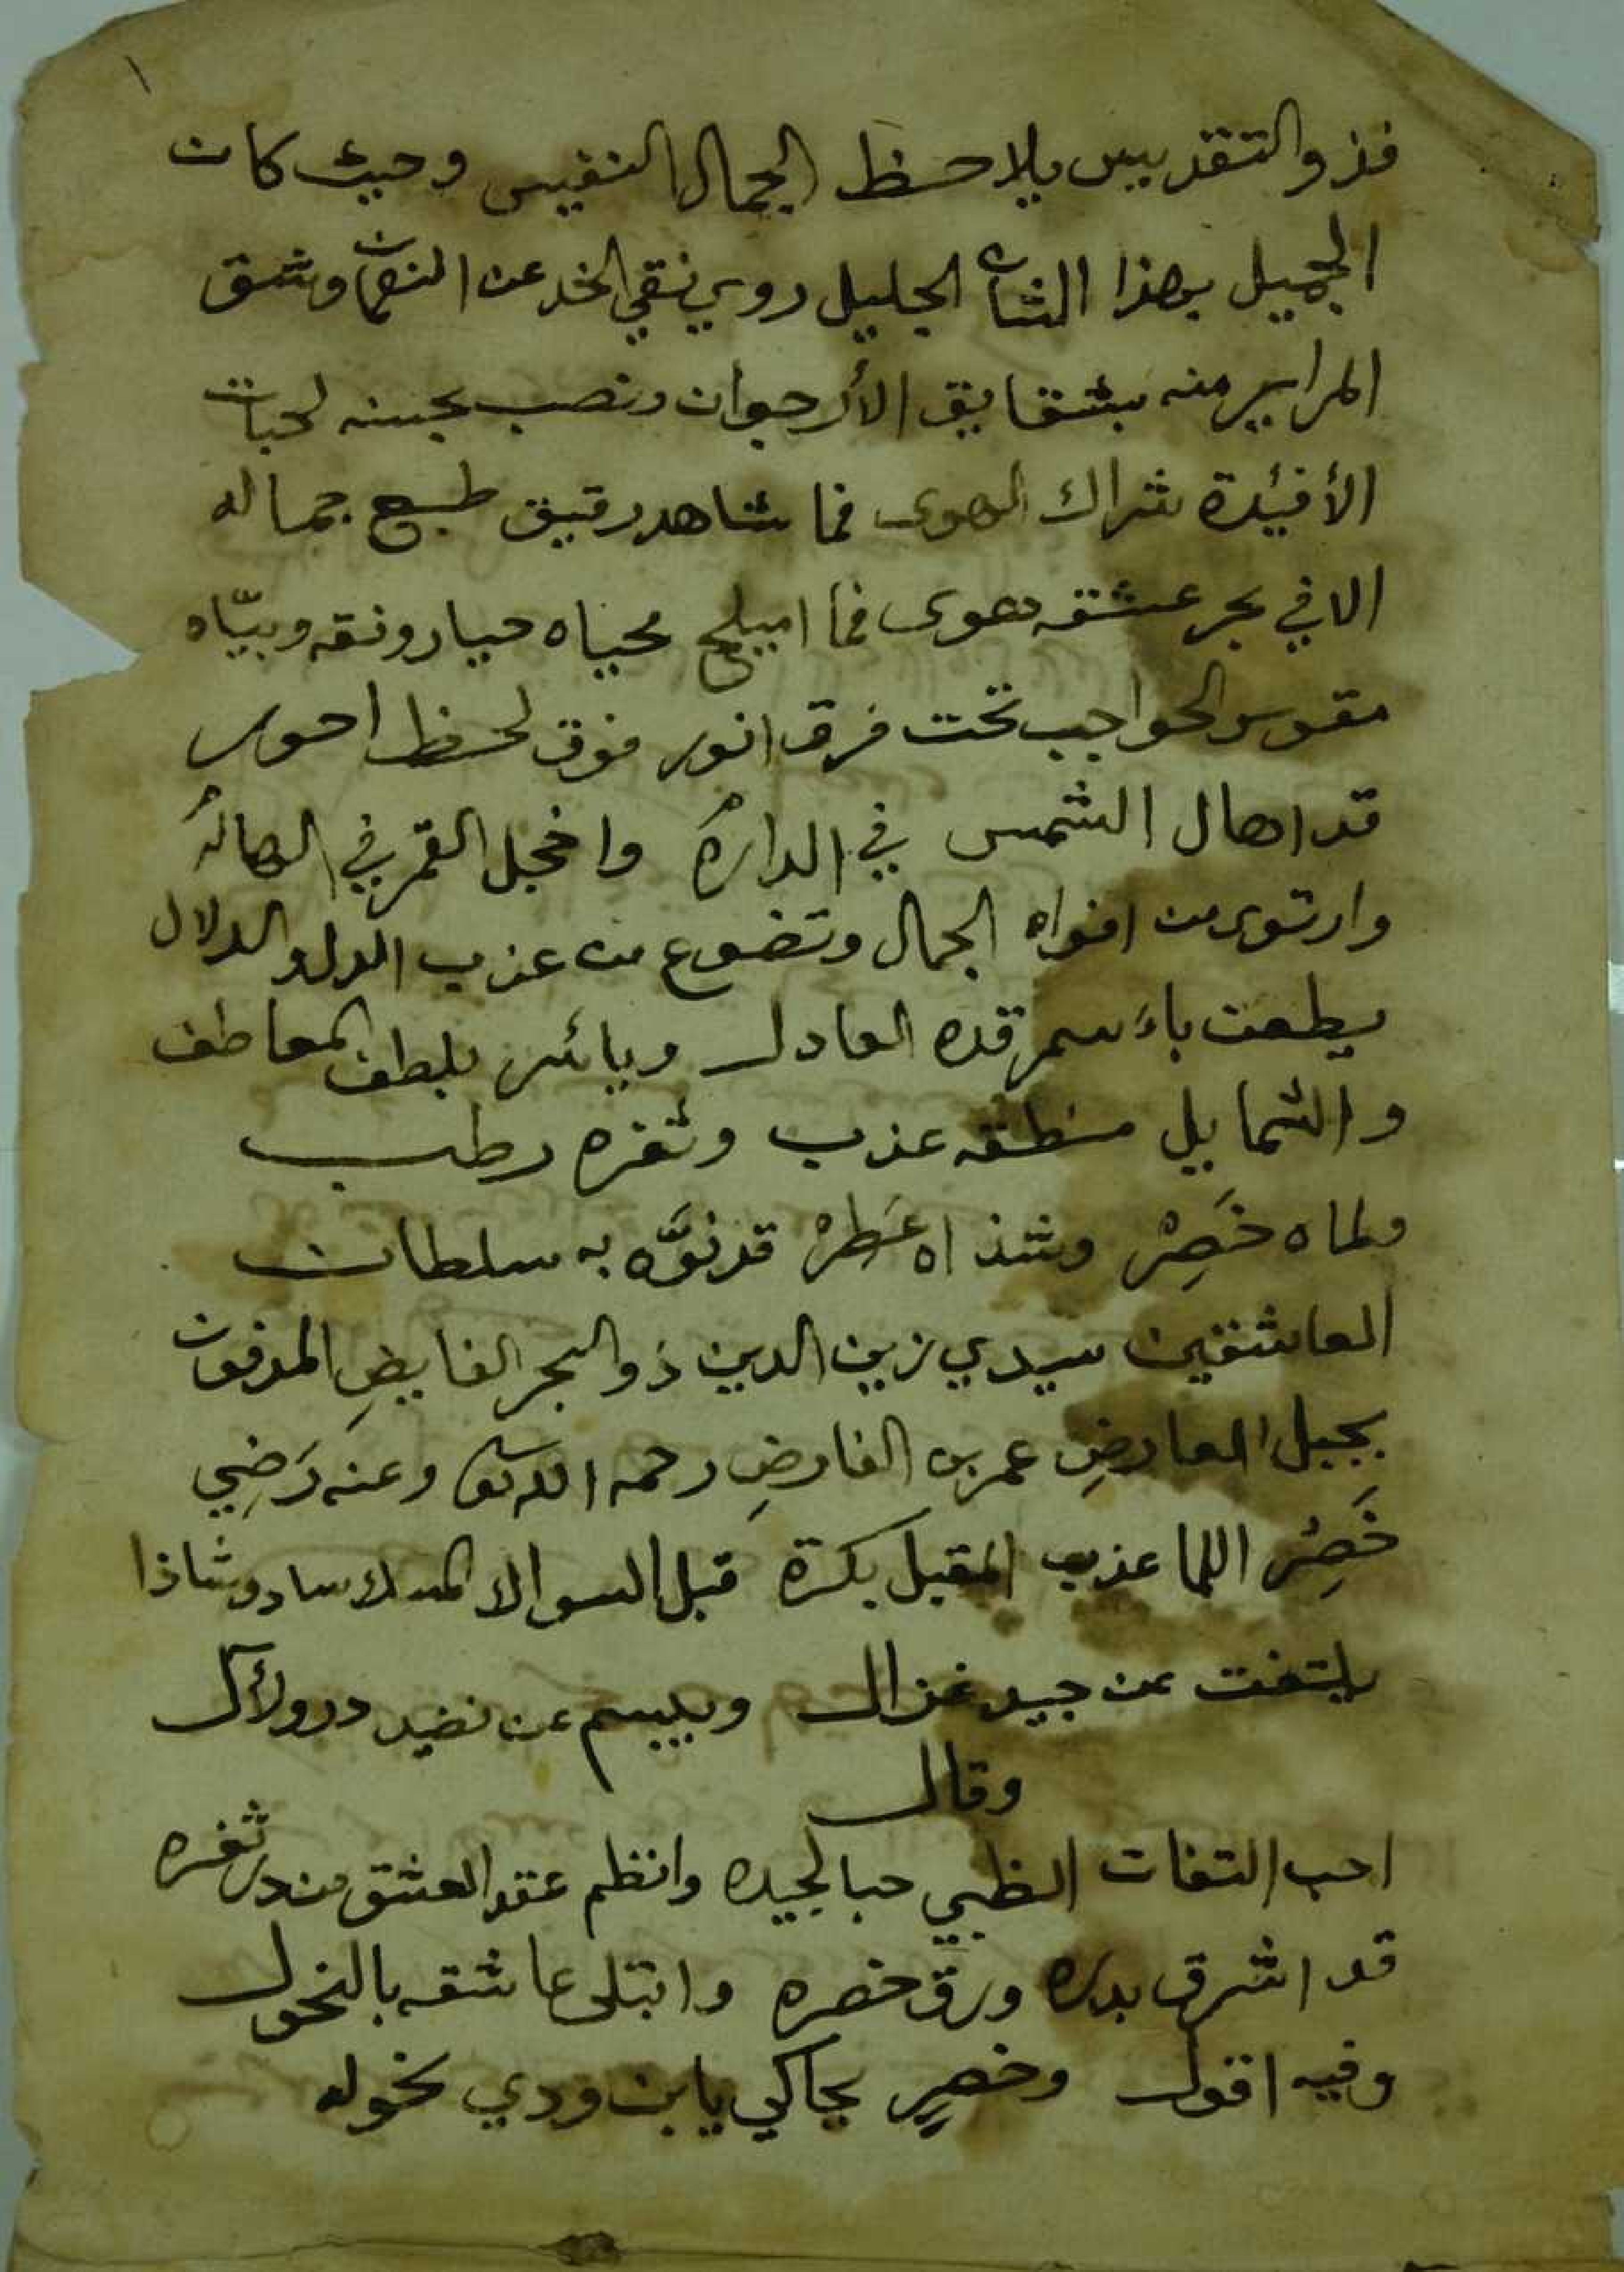 ١
فذو التقديس يلاحظ الجمال النفيس وحيث كان
الجميل بهذا الشان الجليل روي نقي الخد عن النعمان وشق
المراير منه بشقايق الأرجوان ونصب بحسنه لحبات
الأفئدة شراك الهوى فما شاهد رقيق طبع جماله
الا في بحر عشقه هوى فما اميلح محياه حيا رونقه وبيّاه
مقوس الحواجب تحت فرق انور فوق لحظ احور
قد اهال الشمس في الدارة واخجل القمر في الهالة
وارتوى من افواه الجمال وتضوع من عذب الدل والدلال
يطعن باسمر قده العادل ويائسر بلطف المعاطف
والشمايل منطقه عذب وثغره رطب
ولماه خَصِرْ وشذاه عَطِرْ قد نوَّه به سلطان
العاشقين سيدي زين الدين ذو البحر الفايضِ المدفون
بجبل العارضِ عمر بن الفارضِ رحمه الله تعالى وعنه رَضِي
خَصِرُ اللما عذب المقبل بكرة قبل السواك المسك ساد وشاذا
يلتفت عن جيد غزال ويبسم عن نضيد در ولآل
وقال
احب التفات الظبي حبا لجيده وانظم عقد العشق من در ثغره
قد اشرق بدره ورق خصره وابتلى عاشقه بالنحول
وفيه اقول وخصرٍ يحاكي يابن ودي نحوله